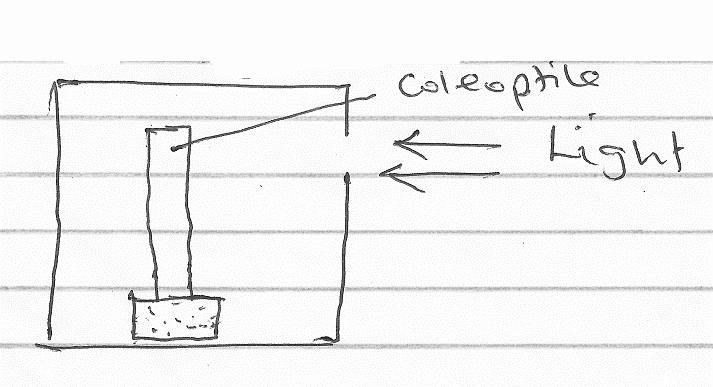 Coleoptile
Light